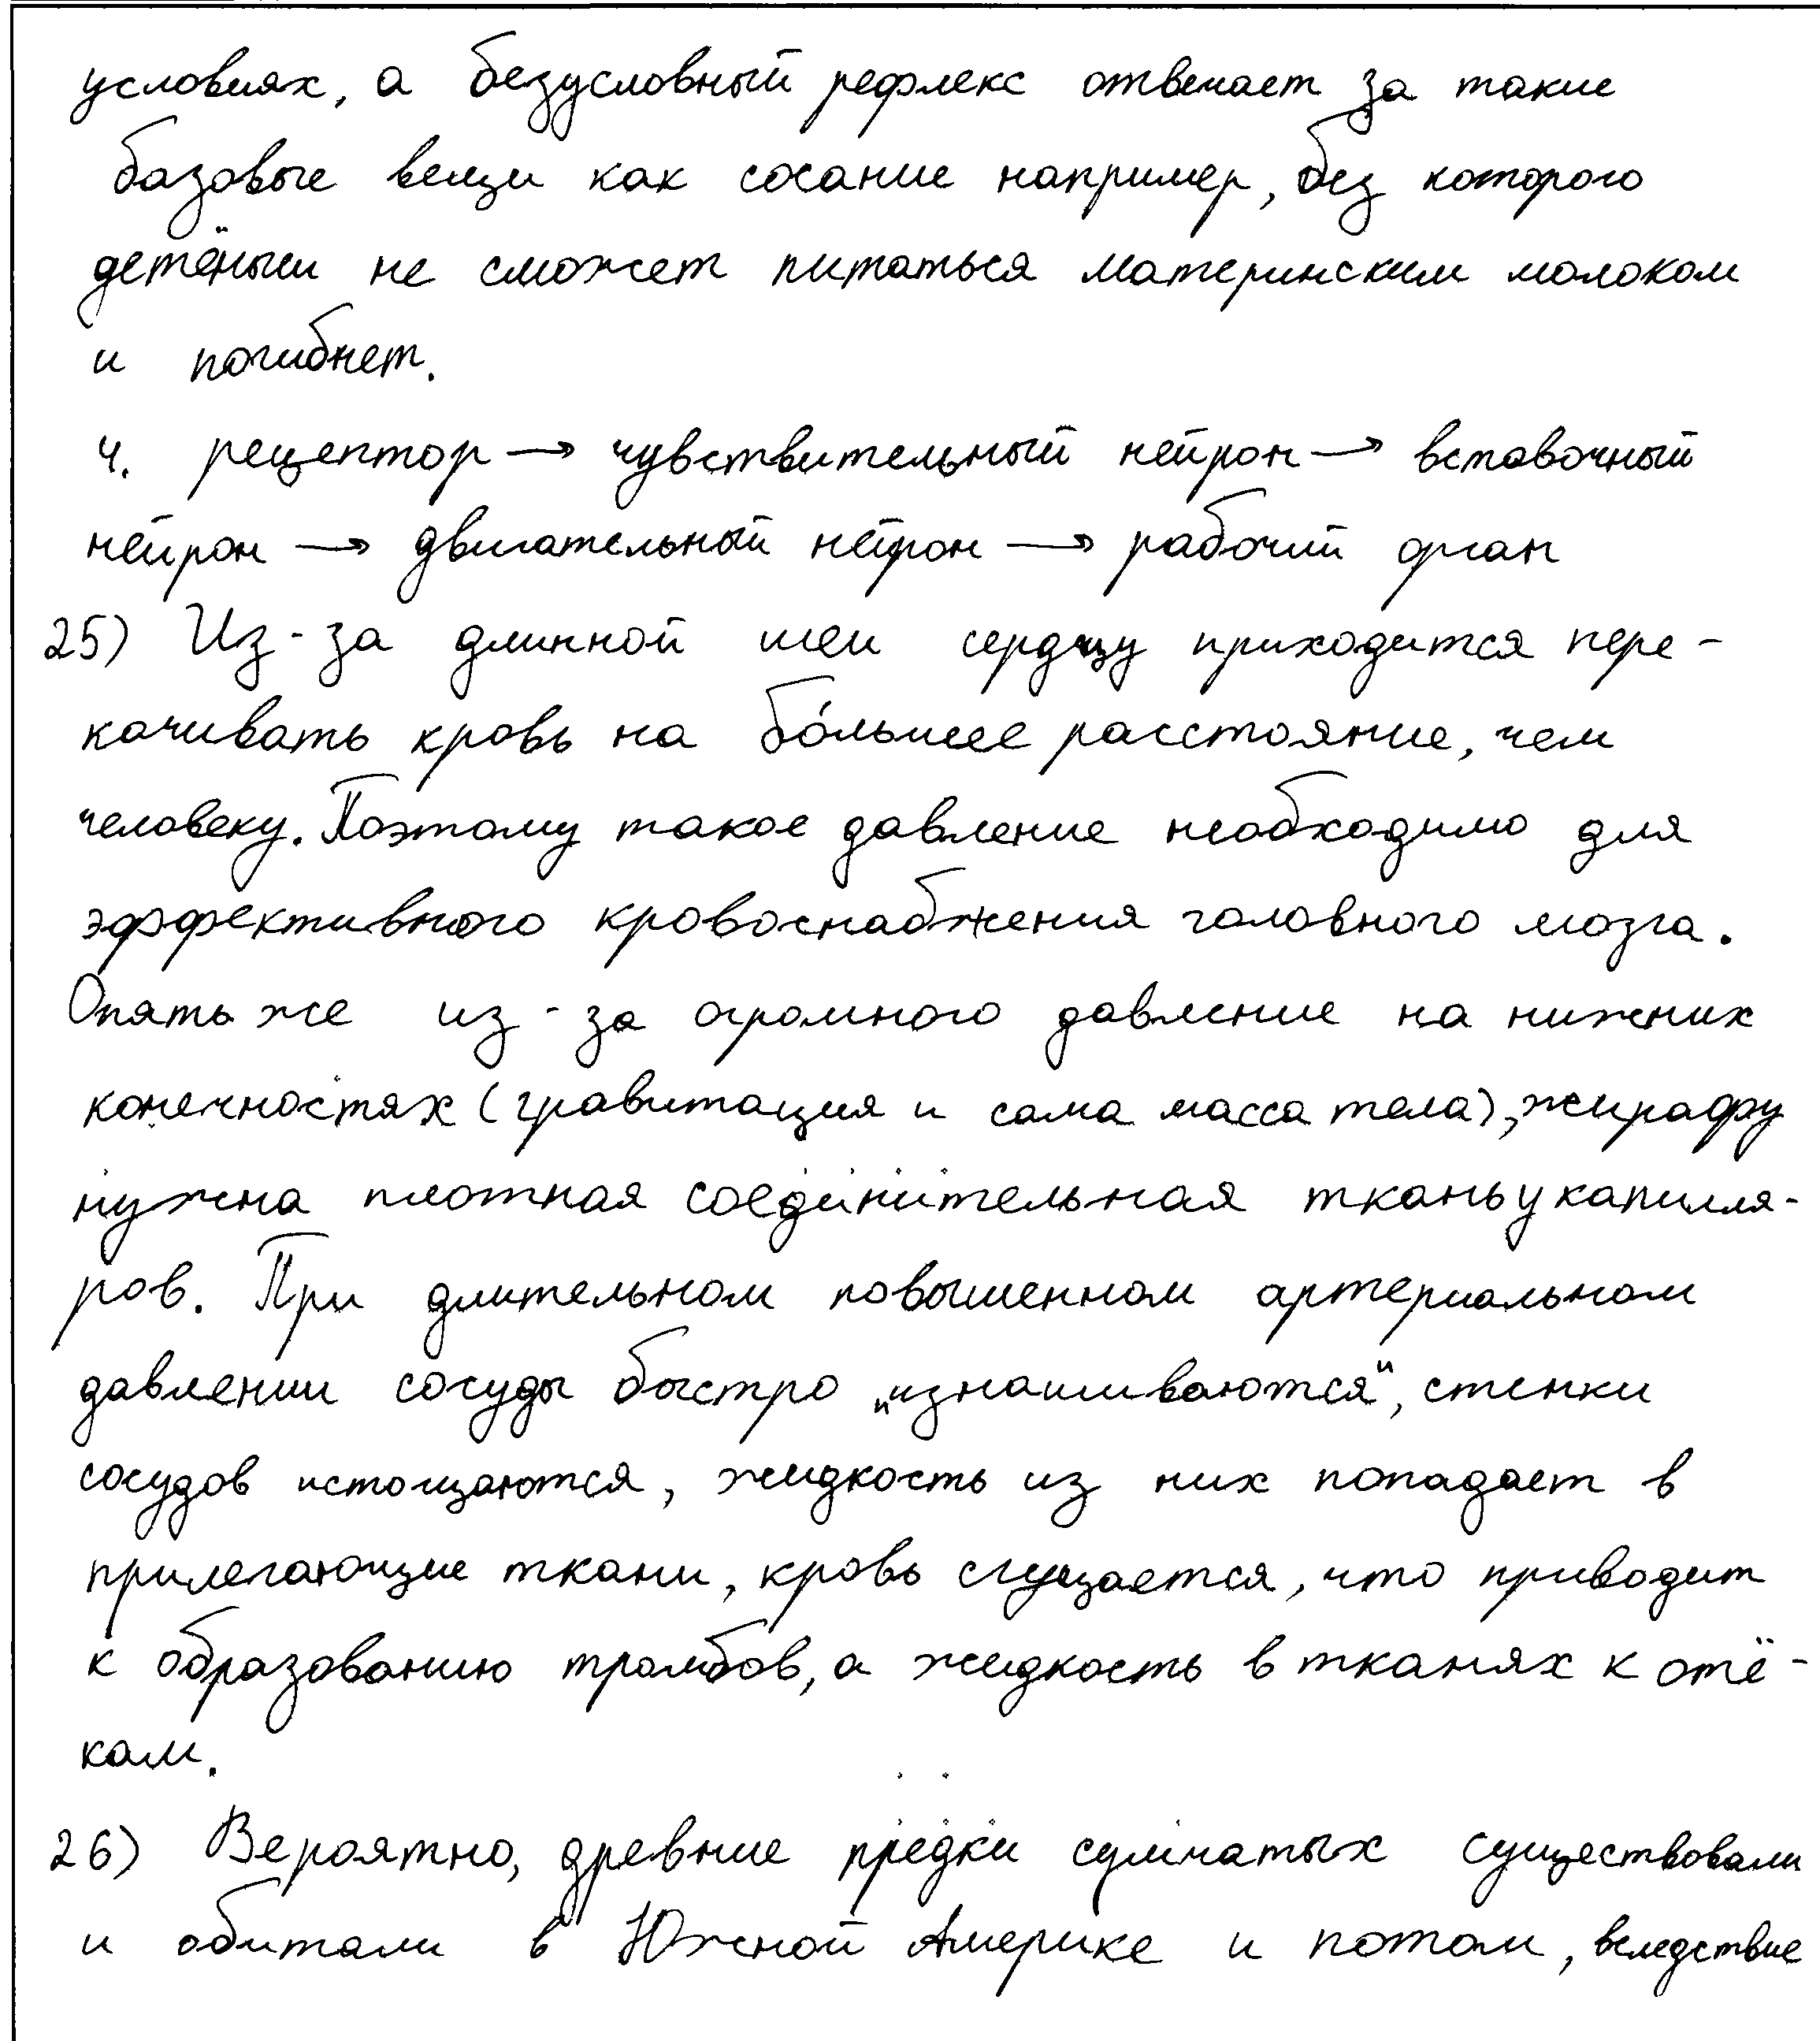 условиях, а безусловный рефлекс отвечает за такие
базовые вещи как сосание например, без которого
детёныш не сможет питаться материнским молоком
и погибнет.
4. рецептор → чувствительный нейрон → вставочный
нейрон → двигательный нейрон → рабочий орган
25) Из-за длинной шеи сердцу приходится пере-
качивать кровь на бо́льшее расстояние, чем
человеку. Поэтому такое давление необходимо для
эффективного кровоснабжения головного мозга.
Опять же из-за огромного давление на нижних
конечностях (гравитация и сама масса тела), жирафу
нужна плотная соединительная ткань у капилля-
ров. При длительном повышенном артериальном
давлении сосуды быстро „изнашиваются“, стенки
сосудов истощаются, жидкость из них попадает в
прилегающие ткани, кровь сгущается, что приводит
к образованию тромбов, а жидкость в тканях к отё-
кам.
26) Вероятно, древние предки сумчатых существовали
и обитали в Южной Америке и потом, вследствие